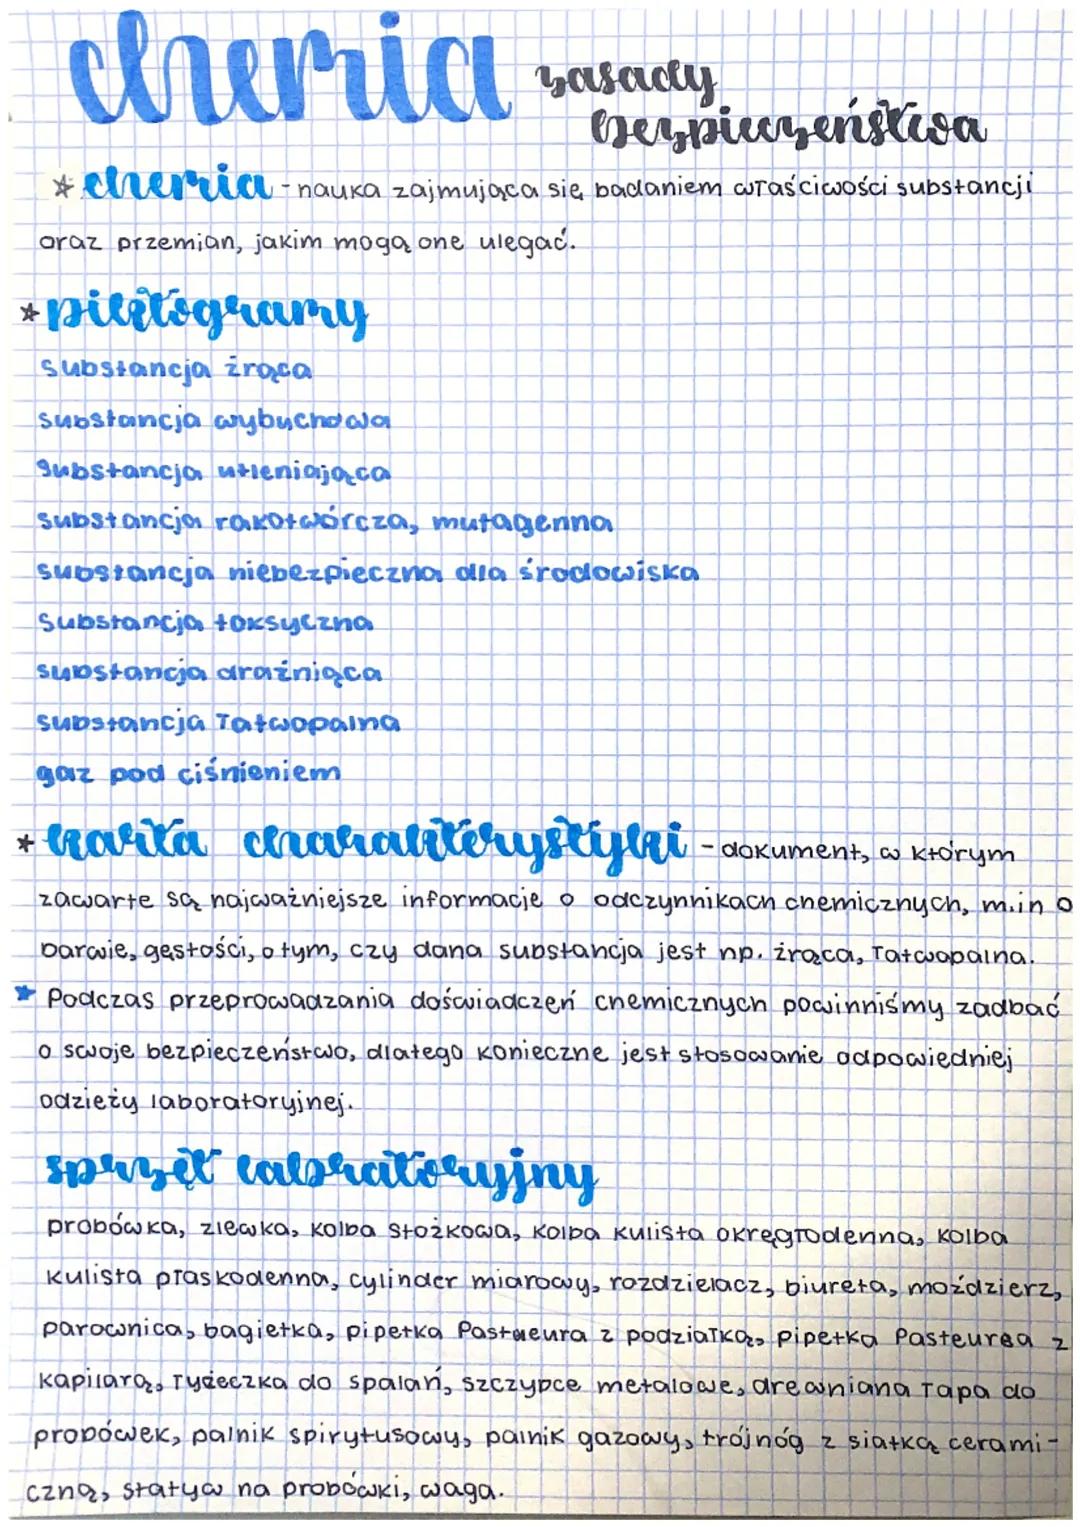 chemia zasady
bezpieczeństwa
* chemia - nauka zajmująca się badaniem właściwości substancji
oraz przemian, jakim mogą one ulegać.
* piktogramy
substancja żrąca
substancja wybuchowa
substancja utleniająca
substancja rakotwórcza, mutagenna
substancja niebezpieczna dla środowiska
substancja toksyczna
substancja drażniąca
substancja łatwopalna
gaz pod ciśnieniem
* karta charakterystyki - dokument, w którym
zawarte są najważniejsze informacje o odczynnikach chemicznych, m.in o
barwie, gęstości, o tym, czy dana substancja jest np. żrąca, łatwopalna.
* Podczas przeprowadzania doświadczeń chemicznych powinniśmy zadbać
o swoje bezpieczeństwo, dlatego konieczne jest stosowanie odpowiedniej
odzieży laboratoryjnej.
sprzęt laboratoryjny
probówka, zlewka, kolba stożkowa, kolba kulista okręgłodenna, kolba
kulista płaskodenna, cylinder miarowy, rozdzielacz, biureta, moździerz,
parownica, bagietka, pipetka Pasteura z podziałką, pipetka Pasteura z
kapilarą, łyżeczka do spalań, szczypce metalowe, drewniana łapa do
probówek, palnik spirytusowy, palnik gazowy, trójnóg z siatką cerami-
czną, statyw na probówki, waga.